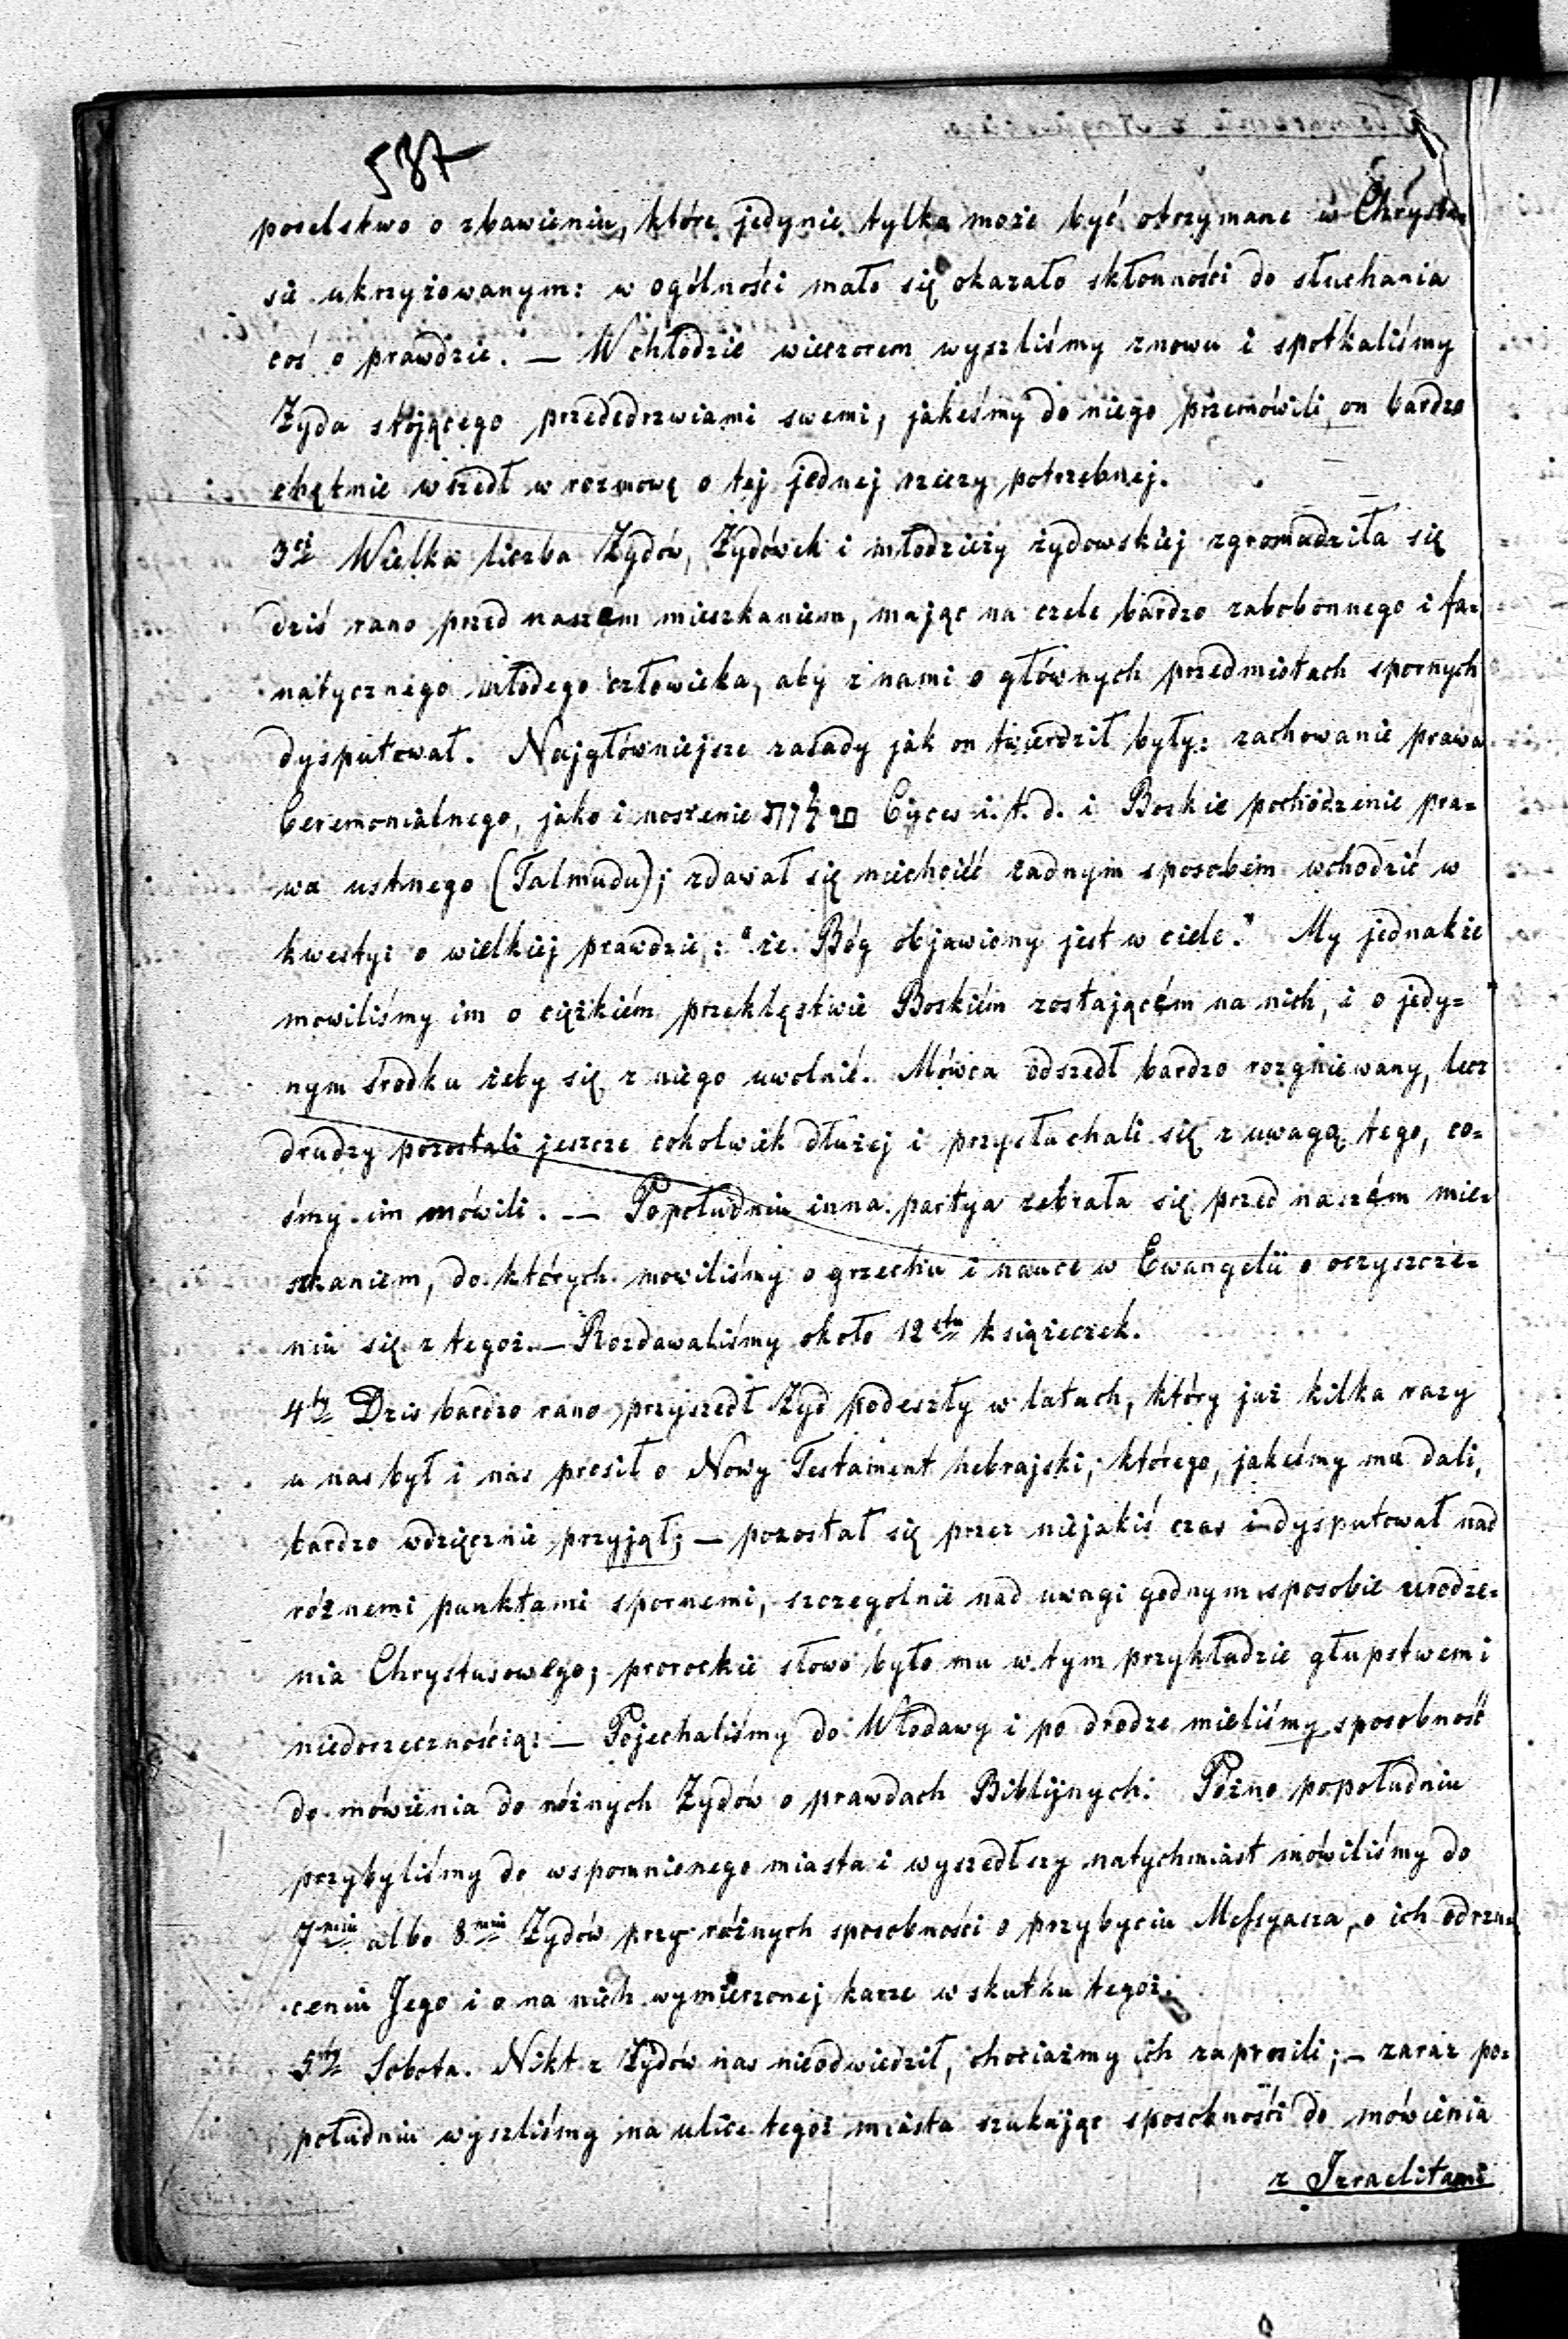 537
poselstwo o zbawieniu, które jedynie tylko może być otrzymane w Chrystu=
sie ukrzyżowanym: w ogólności mało się okazało skłonności do słuchania
coś o prawdzie. — W chłodzie wieczorem wyszliśmy znowu i spotkaliśmy
Żyda stojącego przededrzwiami swemi, jakeśmy do niego przemówili, on bardzo
chętnie wszedł w rozmowę o tej jednej rzeczy potrzebnej.
3ci Wielka liczba Żydów, Żydówek i młodzieży żydowskiej zgromadziła się
dziś rano przed naszém mieszkaniem, mając na czele bardzo zabobonnego i fa=
natycznego młodego człowieka, aby z nami o głównych przedmiotach spornych
dysputował. Najgłówniejsze zasady jak on twierdził były: zachowanie prawa
Ceremonialnego, jako i noszenie Cyces i. t. d. i Boskie pochodzenie pra=
wa ustnego (Talmudu); zdawał się niechcieć żadnym sposobem wchodzić w
kwestyi o wielkiej prawdzie,: "że Bóg objawiony jest w ciele." My jednakże
mowiliśmy im o ciężkiém przeklęstwie Boskiém zostającém na nich, i o jedy=
nym środku żeby się z niego uwolnić. Mówca odszedł bardzo rozgniewany, lecz
drudzy pozostali jeszcze cokolwiek dłużej i przysłuchali się z uwagą tego, co=
śmy im mówili. — Popołudniu inna partya zebrała się przed naszém mie=
szkaniem, do których mowiliśmy o grzechu i nauce w Ewangelii o oczyszcze=
niu się z tegoż. — Rozdawaliśmy około 12stu książeczek.
4ty Dzis bardzo rano przyszedł Żyd podeszły w latach, który już kilka razy
u nas był i nas prosił o Nowy Testament hebrajski; którego, jakeśmy mu dali,
bardzo wdzięcznie przyjął; — pozostał się przez niejakiś czas i dysputował nad
róznemi punktami spornemi, szczegolnie nad uwagi godnym sposobie urodze=
nia Chrystusowego; prorockie słowo było mu w tym przykładzie głupstwem i
niedorzecznością: — Pojechaliśmy do Włodawy i po drodze mieliśmy sposobność
do mówienia do róznych Żydów o prawdach Biblijnych. Pózno popołudniu
przybyliśmy do wspomnionego miasta i wyszedłszy natychmiast mówiliśmy do
7miu albo 8miu Żydów przy różnych sposobności o przybyciu Messyasza, o ich odrzu=
ceniu Jego i o na nich wymierzonej karze w skutku tegoż.
5ty Sobota. Nikt z Żydów nas nieodwiedził, chociażmy ich zaprosili; — zaraz po=
południu wyszliśmy na ulice tegoż miasta szukając sposobności do mówienia
z Izraelitami